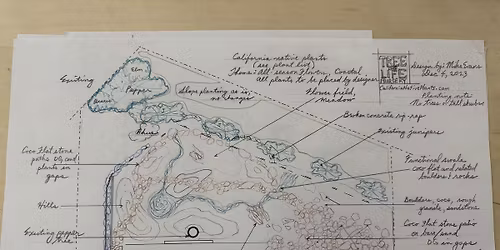 California native plants
(see plant list)
Theme: All season Flowers, Coastal
All plants to be placed by designer
TREE
OF
LIFE
NURSERY
Design by: Mike Evans
Dec 4, 2023
CaliforniaNativePlants.com
Planting note:
No trees or tall shrubs
Elm
Existing
Pepper
Slope planting as is,
no changes
Flower field,
meadow
Broken concrete rip-rap
Existing junipers
Rhus
Coco flat stone
paths DG and
plants in
gaps
Functional swale
coco flat and related
boulders & rocks
Hills
Boulders, coco, rough
granite, sandstone
Existing pepper
tree
Coco flat stone patio
sand
DG in gaps